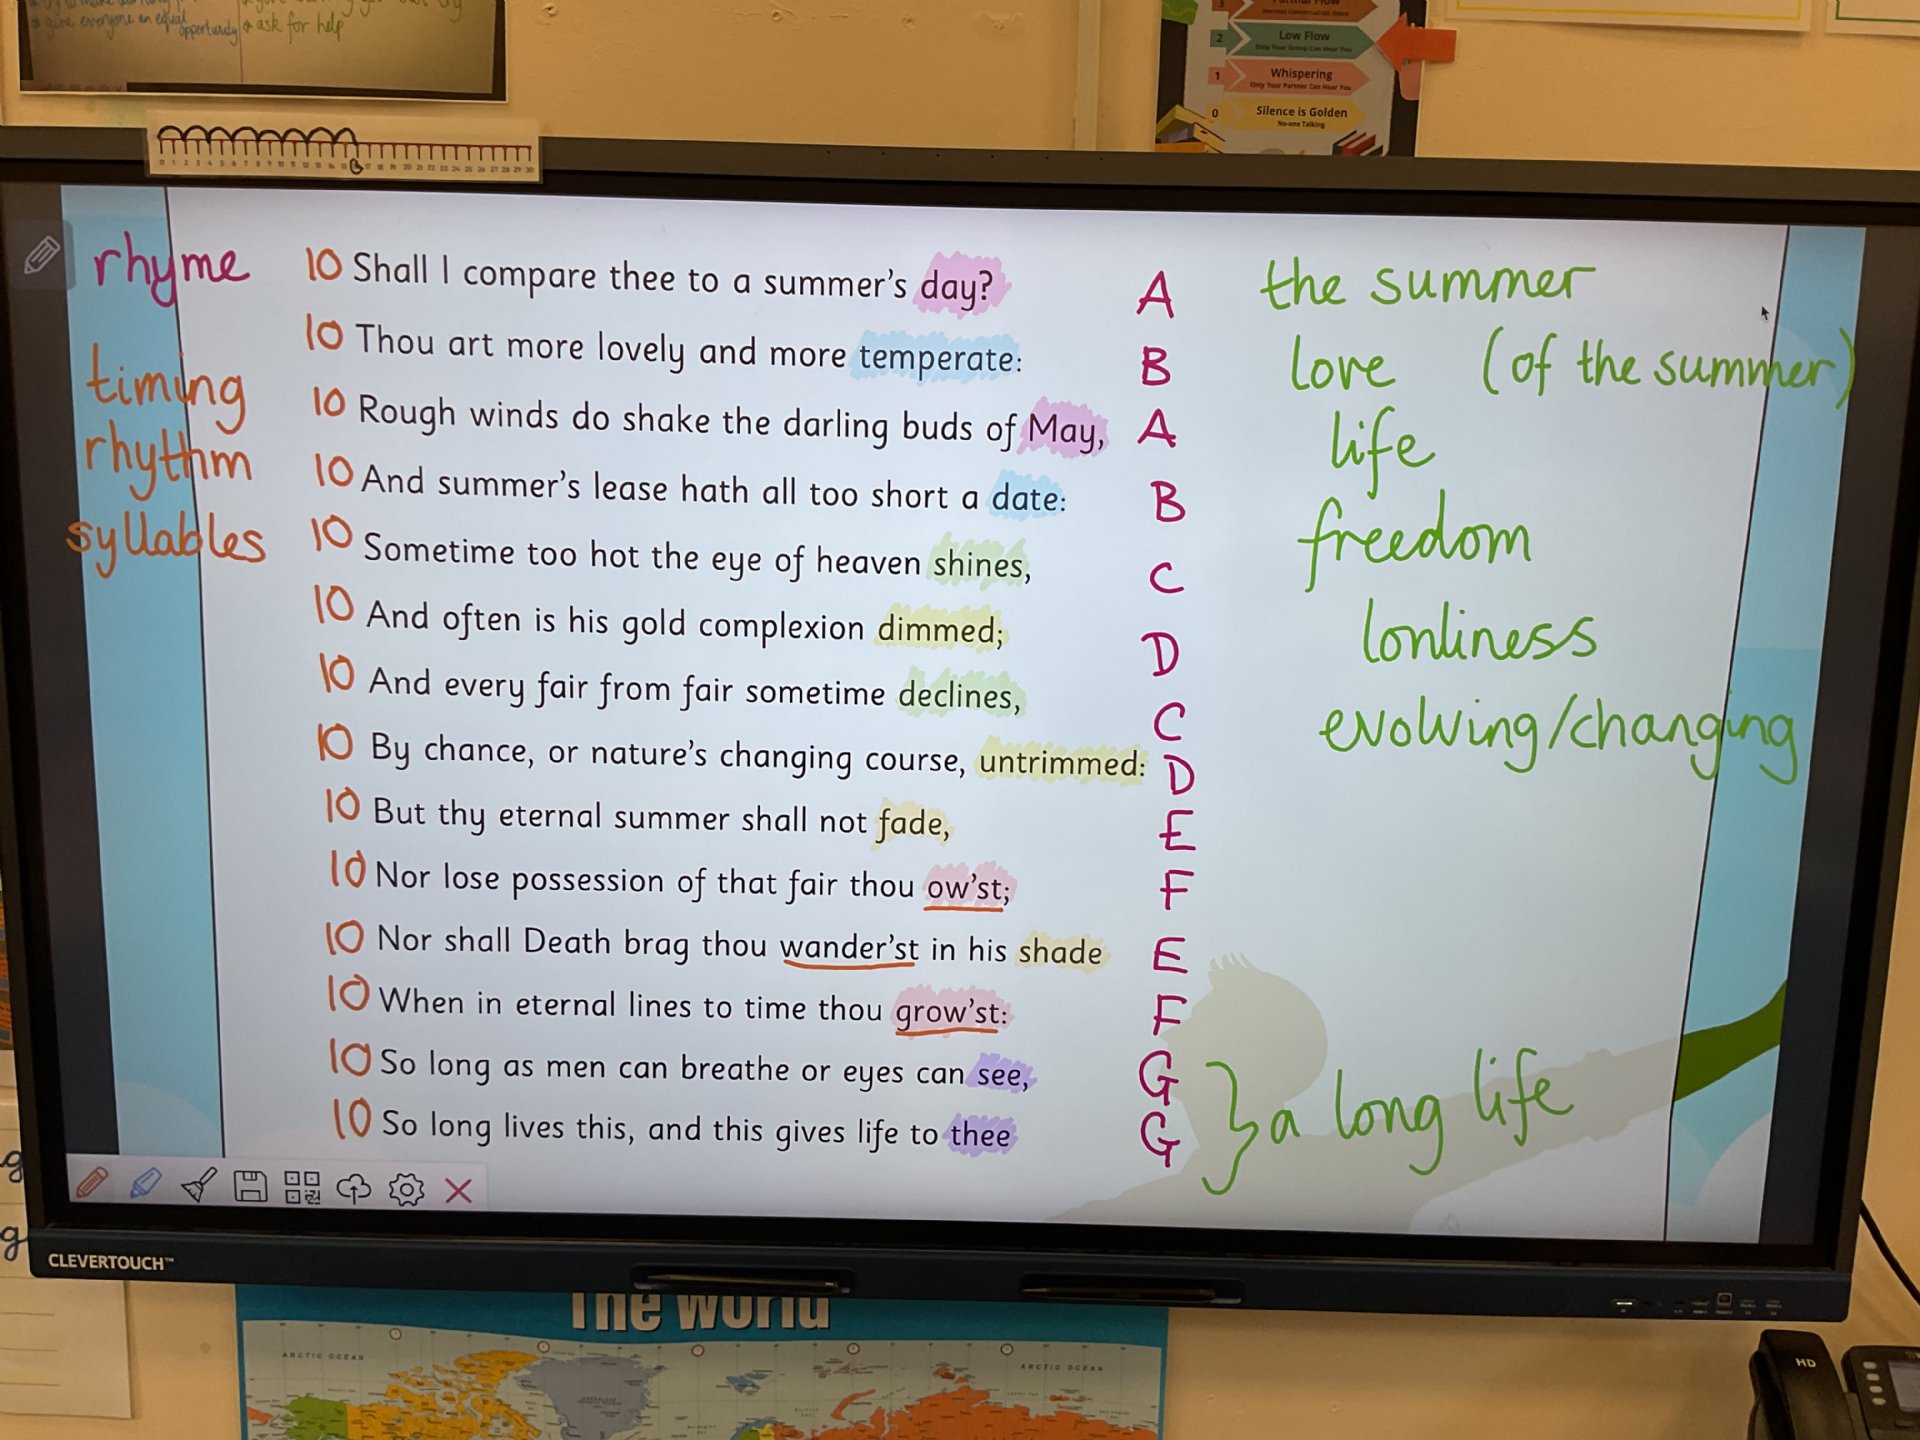 give everyone an equal opportunity
ask for help
Low Flow
Only Your Group Can Hear You
Whispering
Only Your Partner Can Hear You
Silence is Golden
No-one Talking
3
2
1
0
rhyme
timing
rhythm
syllables
10 Shall I compare thee to a summer's day? A
10 Thou art more lovely and more temperate: B
10 Rough winds do shake the darling buds of May, A
10 And summer's lease hath all too short a date: B
10 Sometime too hot the eye of heaven shines, C
10 And often is his gold complexion dimmed; D
10 And every fair from fair sometime declines, C
10 By chance, or nature's changing course, untrimmed: D
10 But thy eternal summer shall not fade, E
10 Nor lose possession of that fair thou ow'st; F
10 Nor shall Death brag thou wander'st in his shade E
10 When in eternal lines to time thou grow'st: F
10 So long as men can breathe or eyes can see, G
10 So long lives this, and this gives life to thee G
the summer
love (of the summer)
life
freedom
lonliness
evolving/changing
a long life
CLEVERTOUCH™
The World
ARCTIC OCEAN
ARCTIC OCEAN
HD